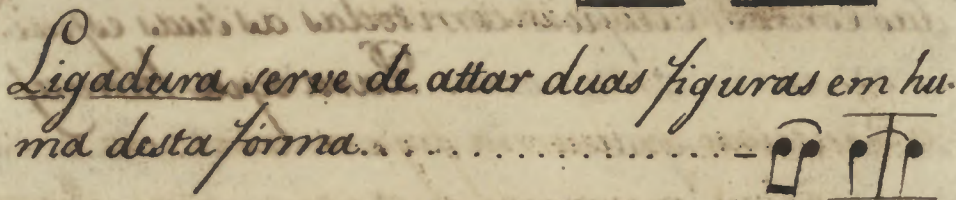 Ligadura serve de attar duas figuras em hu-
ma desta fórma..................